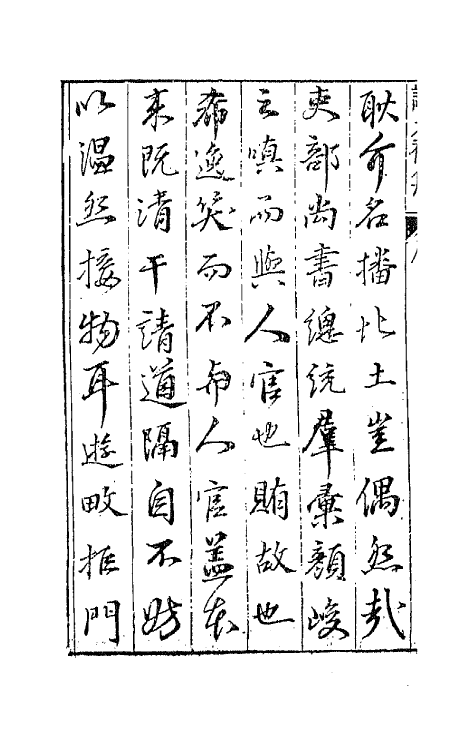 耿介名播北土豈偶然哉
吏部尚書總統羣彙顏峻
之嗔而與人官也賄故也
希逸笑而不与人官盖本
来既清干請道隔自不妨
以温然接物耳遊畋拒門